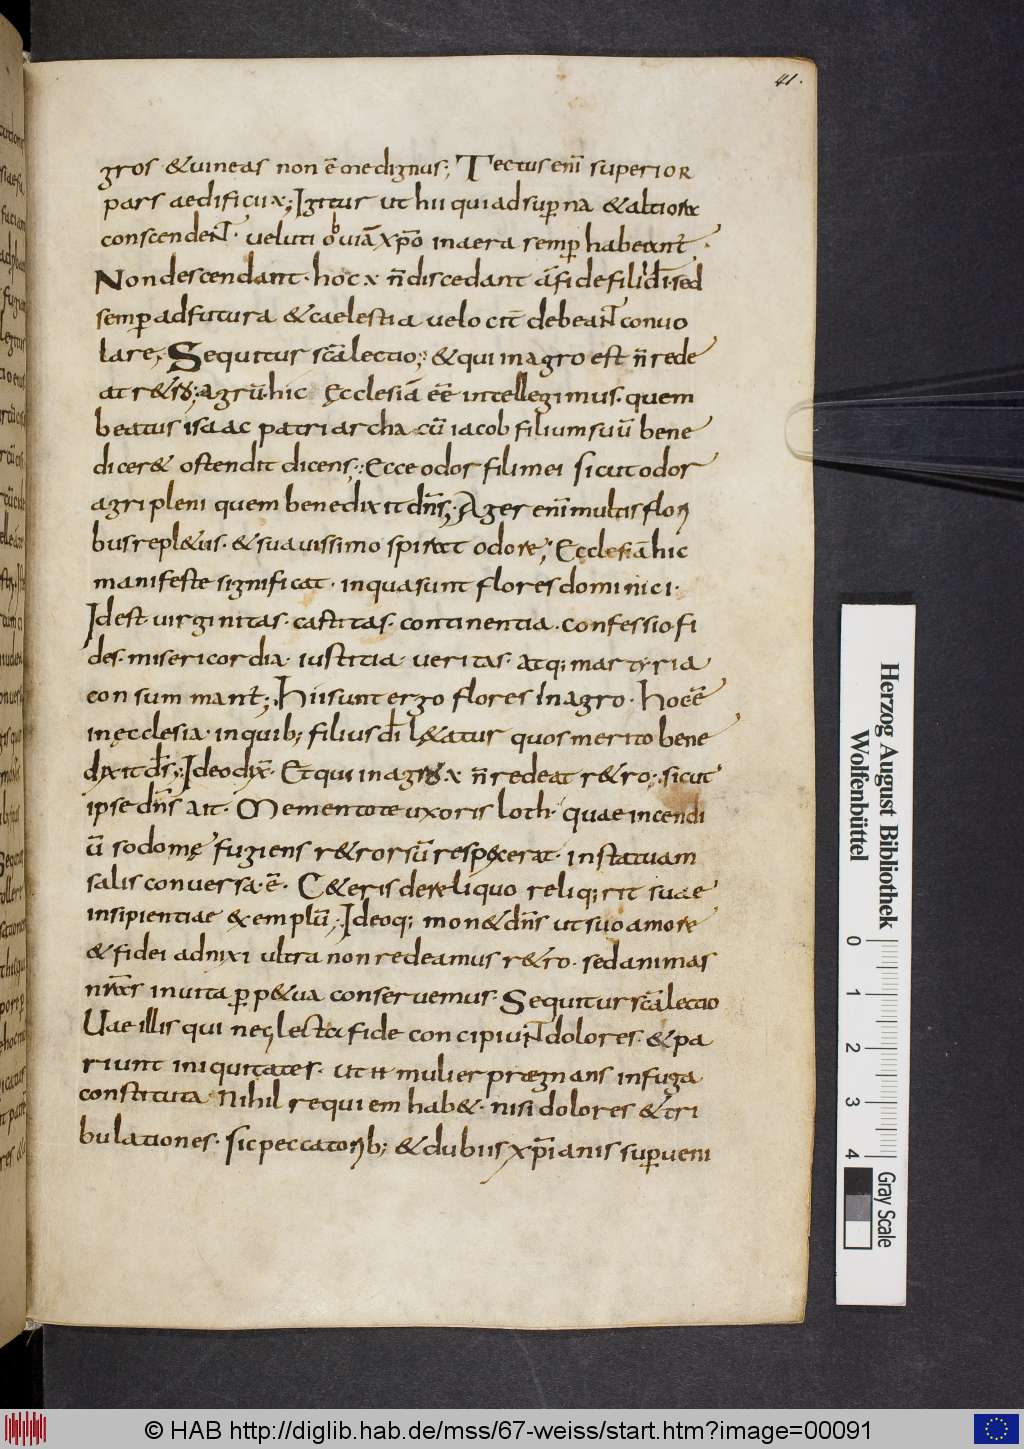 41.
gros &uineas non ē me dignus; Tectus eni̅ superior
pars aedificii x; Igitur ut hii qui ad superna & altiora
conscendent. ueluti obuiā xp̄o in aera semper habeant.
Non descendant. hoc x n̄ discedant ā fide filii dī. sed
semper ad futura & caelestia uelocit̄ debeant conuo
lare; Sequitur sc̄a lectio; & qui in agro est n̄ rede
at r&ro; agrū. hic ęcclesiā eē intellegimus. quem
beatus isaac patriarcha cū iacob filium suū bene
dicer& ostendit dicens; Ecce odor fili mei sicut odor
agri pleni quem benedixit dn̄s; Ager eni̅ multis flori
bus repl&us. & suauissimo spirat odore; Ecclesiā hic
manifeste significat. in qua sunt flores dominici.
Idest. uirginitas. castitas. continentia. confessio fi
dei. misericordia. iustitia. ueritas. atq; martyria
consummant̄; Hii sunt ergo flores In agro. Hoc ē
in ęcclesia. in quib; filius dī lętatur quos merito bene
dixit dī; Ideo dix̄. Et qui in agro x n̄ redeat r&ro; sicut
ipse dn̄s ait. Mementote uxoris loth. quae incendi
ū sodomę fugiens r&rorsū respęcerat. in statuam
salis conuersa. ē. C&eris dereliquo reliq; rit suae
insipientiae exemplū; Ideoq; mon& dn̄s ut suo amore
& fidei adnixi ultra non redeamus r&ro. sed animas
nr̄as in uita perp&ua conseruemus. Sequitur sc̄a lectio
Uae illis qui neglecta fide concipiunt dolores. & pa
riunt iniquitates. Ut mulier praegnans in fuga
constituta. Nihil requiem hab&. nisi dolores & tri
bulationes. sic peccatorib; & dubiis xp̄ianis superueni
Herzog August Bibliothek
Wolfenbüttel
0 1 2 3 4
Gray Scale
© HAB http://diglib.hab.de/mss/67-weiss/start.htm?image=00091